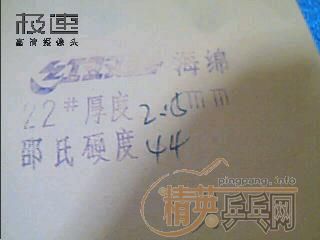 极速
高清摄像头
海绵
22#厚度2.15mm
邵氏硬度44
pingpang.info
精英乒乓网